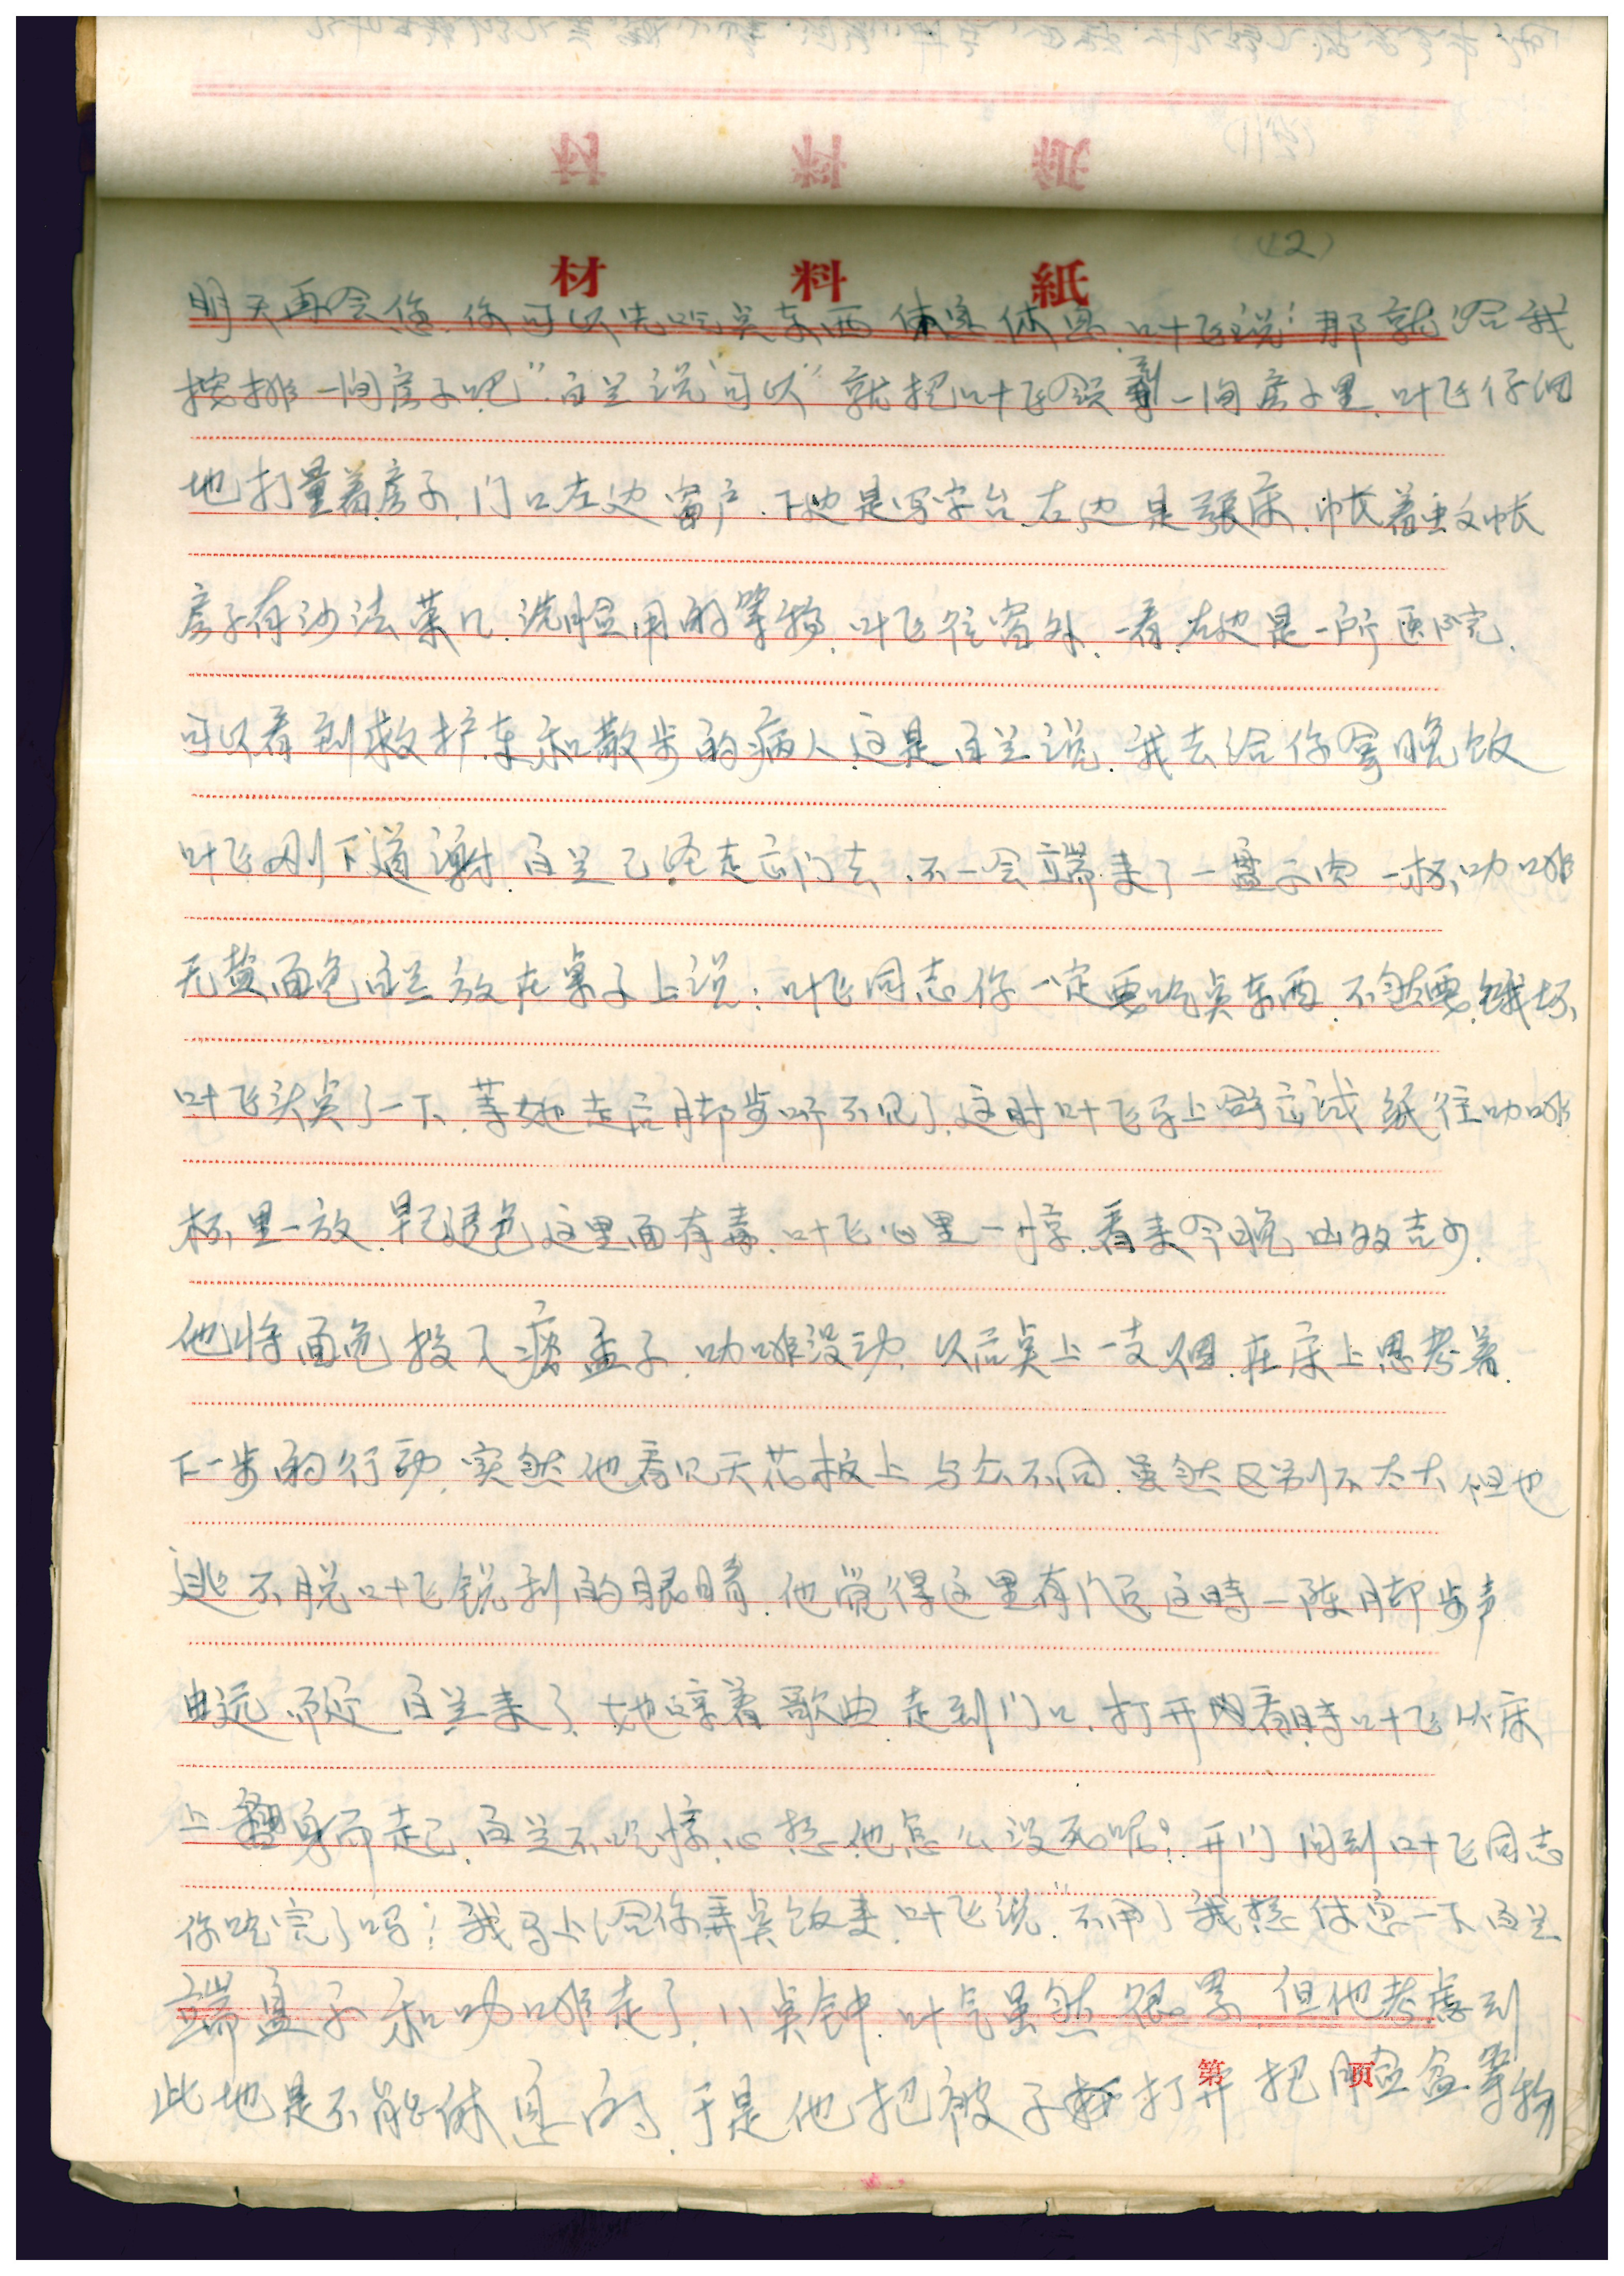 (12)
材料紙
明天再会您.你可以先吃点东西休息休息.叶飞说:那就给我
按排一间房子吧”.白兰说“可以”就把叶飞领到一间房子里.叶飞仔细
地打量着房子.门口左边窗户.下边是写字台右边是张床.帐着蚊帐
房子有沙法菜几.洗脸用的等物.叶飞往窗外一看.左边是一所医院.
可以看到救护车和散步的病人这是白兰说.我去给你拿晚饭
叶飞刚下道谢.白兰已经走出门去.不一会端来了一盘子肉一杯咖啡
无黄面包白兰放在桌子上说:叶飞同志你一定要吃点东西.不然要饿坏
叶飞头点了一下.等她走后脚步听不见了.这时叶飞马上拿出试纸往咖啡
杯里一放.早已退色这里面有毒.叶飞心里一惊.看来今晚凶多吉少.
他将面包投入痰盂子.咖啡没动.以后点上一支烟.在床上思考着.
下一步的行动.突然他看见天花板上与众不同.虽然区别不太大但也
逃不脱叶飞锐利的眼睛.他觉得这里有门这時一阵脚步声
由远而近白兰来了.她哼着歌曲走到门口.打开门看時叶飞从床
上翻身而起.白兰不吃惊.心想他怎么没死呢?开门问到叶飞同志
你吃完了吗?我马上给你弄点饭来.叶飞说“不用了我想休息一下白兰
端盘子和咖啡走了.11点钟.叶飞虽然很累.但他考虑到
此地是不能休息的.于是他把被子打开把脸盆等物
第 页